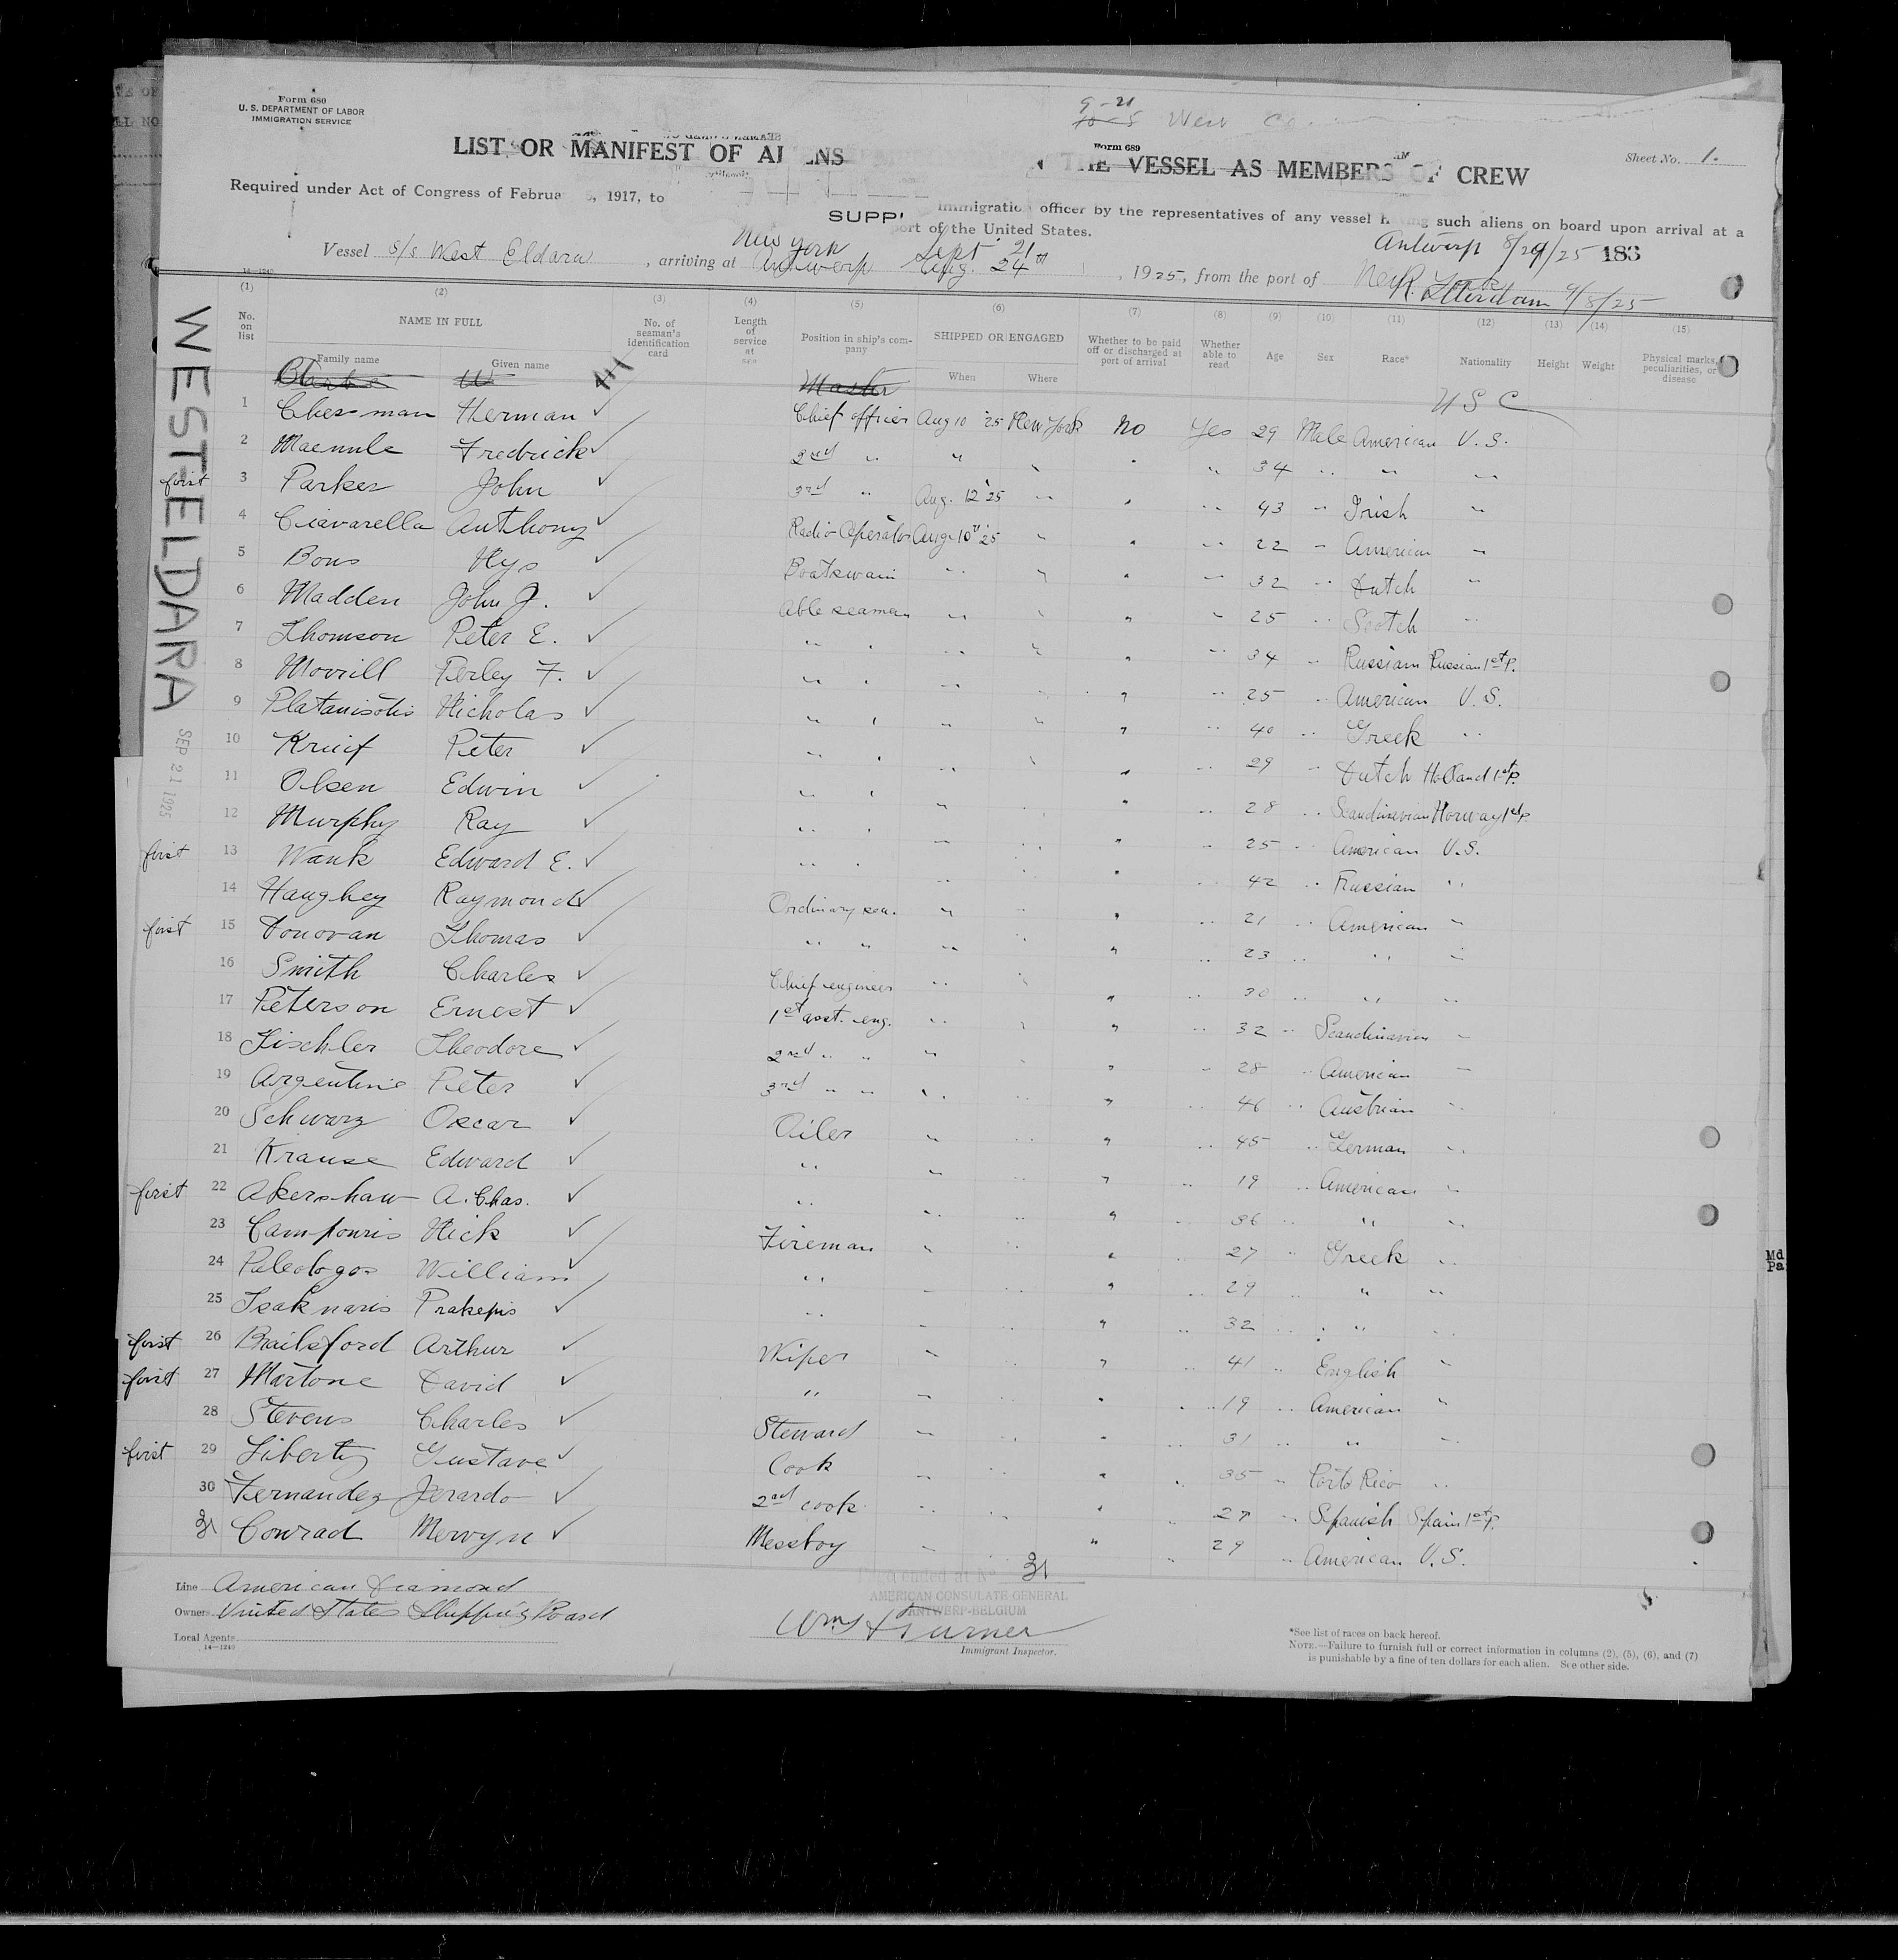 Form 680
U. S. DEPARTMENT OF LABOR
IMMIGRATION SERVICE
9-21
Form 689
Sheet No. 1.
LIST OR MANIFEST OF THE VESSEL AS MEMBERS OF CREW
Required under Act of Congress of 1917, to immigration officer by the representatives of any vessel such aliens on board upon arrival at a
port of the United States.
SUPP'
New York Sept 21 Antwerp 8/29/25 183
Vessel S/S West Eldara, arriving at Antwerp Aug. 24th, 1925, from the port of New York
Rotterdam 9/8/25
14-1240
(1) (2) (3) (4) (5) (6) (7) (8) (9) (10) (11) (12) (13) (14) (15)
No. on list
NAME IN FULL
Family name Given name
No. of seaman's identification card
Length of service at sea
Position in ship's company
SHIPPED OR ENGAGED
When Where
Whether to be paid off or discharged at port of arrival
Whether able to read
Age Sex Race* Nationality Height Weight
Physical marks, peculiarities, or disease
WEST ELDARA
SEP 21 1925
Master
U S C
1 Chessman Herman ✓ Chief officer Aug 10 '25 New York No Yes 29 Male American U.S.
2 Fredrick ✓ 2nd " " " " " 34 " " "
first 3 Parker John ✓ 3rd " Aug. 12 '25 " " " 43 " Irish "
4 Ciavarella Anthony ✓ Radio Operator Aug 10th '25 " " " 22 " American "
5 Bons Hys ✓ Boatswain " " " " 32 " Dutch "
6 Madden John J. ✓ Able seaman " " " " 25 " Scotch "
7 Thomson Peter E. ✓ " " " " " " 34 " Russian Russian 1st P.
8 Morrill Perley F. ✓ " " " " " " 25 " American U.S.
9 Platanisotis Nicholas ✓ " " " " " " 40 " Greek "
10 Kruif Peter ✓ " " " " " " 29 " Dutch Holland 1st P.
11 Olsen Edwin ✓ " " " " " " 28 " Scandinavian Norway 1st P.
12 Murphy Ray ✓ " " " " " " 25 " American U.S.
first 13 Wank Edward E. ✓ " " " " " " 42 " Russian "
14 Haughey Raymond ✓ Ordinary sea. " " " " 21 " American "
first 15 Donovan Thomas ✓ " " " " " " 23 " " "
16 Smith Charles ✓ Chief engineer " " " " 30 " " "
17 Peterson Ernest ✓ 1st asst. eng. " " " " 32 " Scandinavian "
18 Tischler Theodore ✓ 2nd " " " " " " 28 " American "
19 Argentine Peter ✓ 3rd " " " " " " 46 " Austrian "
20 Schwarz Oscar ✓ Oiler " " " " 45 " German "
21 Krause Edward ✓ " " " " " 19 " American "
first 22 Akershaw A. Chas. ✓ " " " " " 36 " " "
23 Campouris Nick ✓ Fireman " " " " 27 " Greek "
24 Paleologos William ✓ " " " " " 29 " " "
25 Tsaknaris Prakepis ✓ " " " " " 32 " " "
first 26 Brailsford Arthur ✓ Wiper " " " " 41 " English "
first 27 Martone David ✓ " " " " " 19 " American "
28 Stevens Charles ✓ Steward " " " " 31 " " "
first 29 Liberty Gustave ✓ Cook " " " " 35 " Porto Rico "
30 Fernandez Jerardo ✓ 2nd cook " " " " 27 " Spanish Spain 1st P.
31 Conrad Mervyn ✓ Messboy " " " " 29 " American U.S.
Md
Pa
Line American Diamond
Owners United States Shipping Board
Local Agents
14-1240
ended at No 31
AMERICAN CONSULATE GENERAL
ANTWERP-BELGIUM
Wm J Turner
Immigrant Inspector.
*See list of races on back hereof.
NOTE.—Failure to furnish full or correct information in columns (2), (5), (6), and (7)
is punishable by a fine of ten dollars for each alien. See other side.